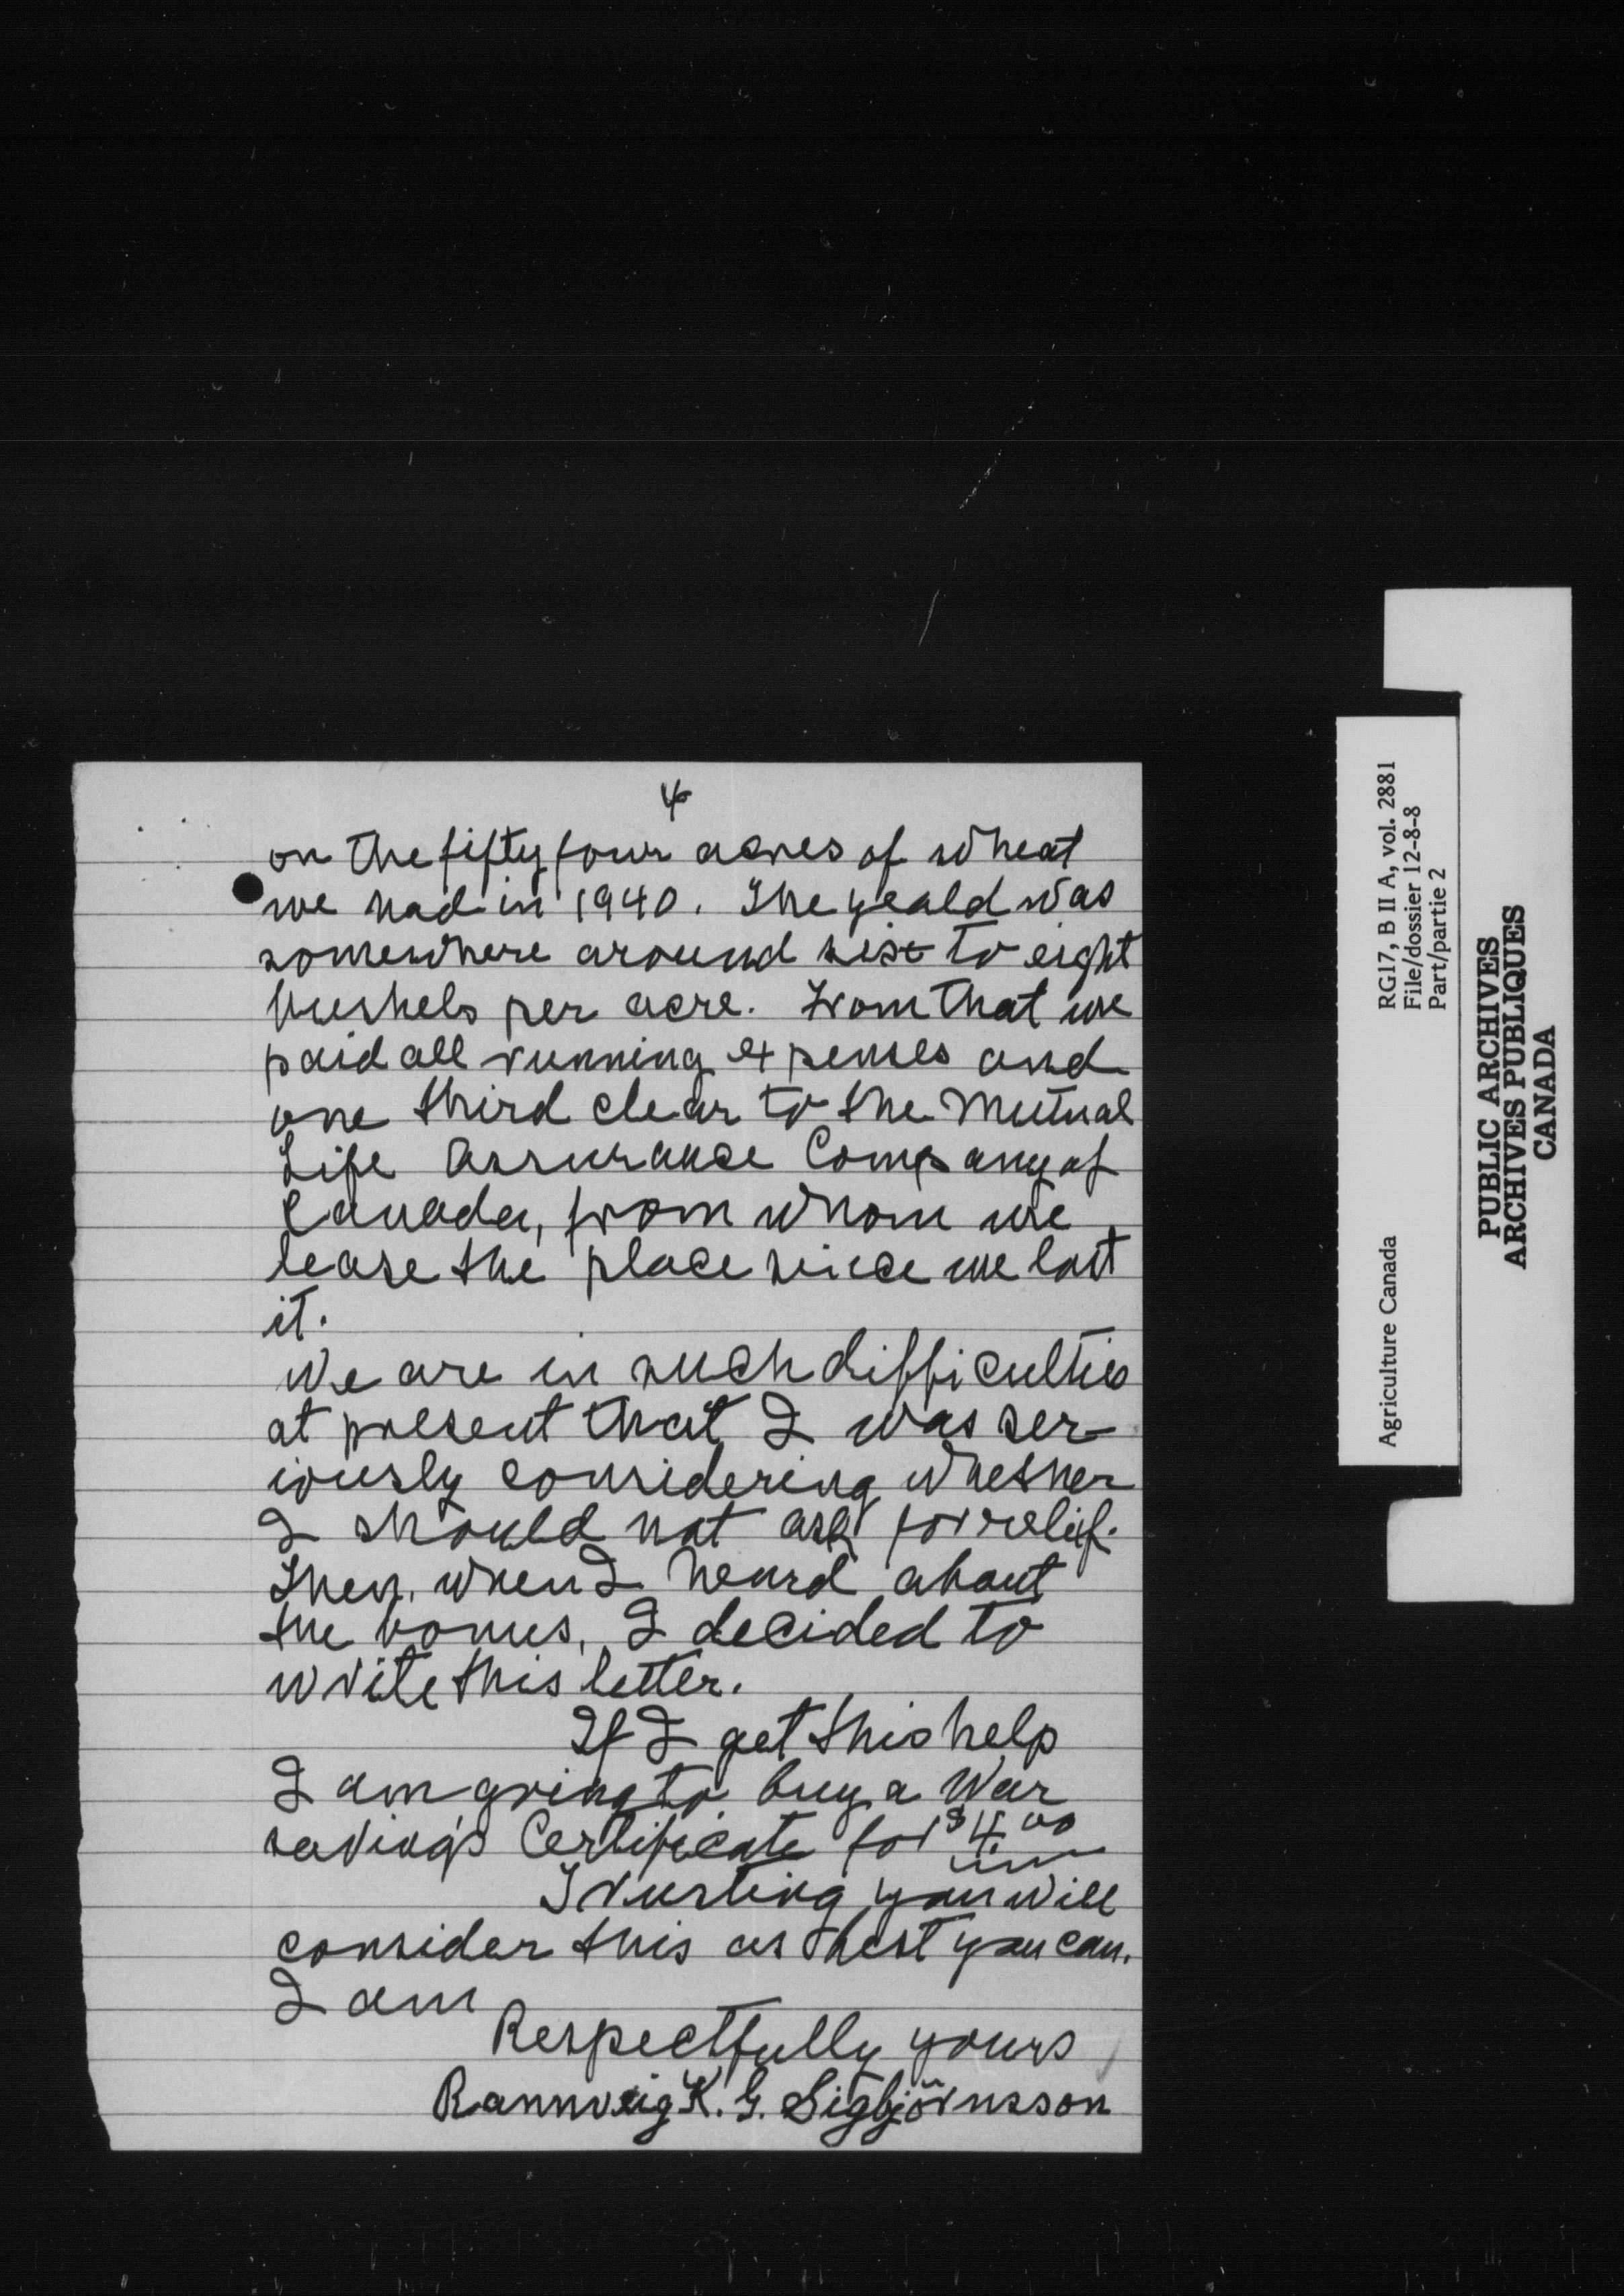 4
on the fifty four acres of wheat
we had in 1940. The yeald was
somewhere around six to eight
bushels per acre. From that we
paid all running expenses and
one third clear to the Mutual
Life Assurance Company of
Canada, from whom we
lease the place since we lost
it.
We are in such difficulties
at present that I was ser-
iously considering whether
I should not ask for relif.
Then, when I heard about
the bonus, I decided to
write this letter.
If I get this help
I am going to buy a War
savings Certificate for $4.00
Trusting you will
consider this as best you can.
I am
Respectfully yours
Rannveig K. G. Sigbjörnsson
Agriculture Canada
RG17, B II A, vol. 2881
File/dossier 12-8-8
Part/partie 2
PUBLIC ARCHIVES
ARCHIVES PUBLIQUES
CANADA